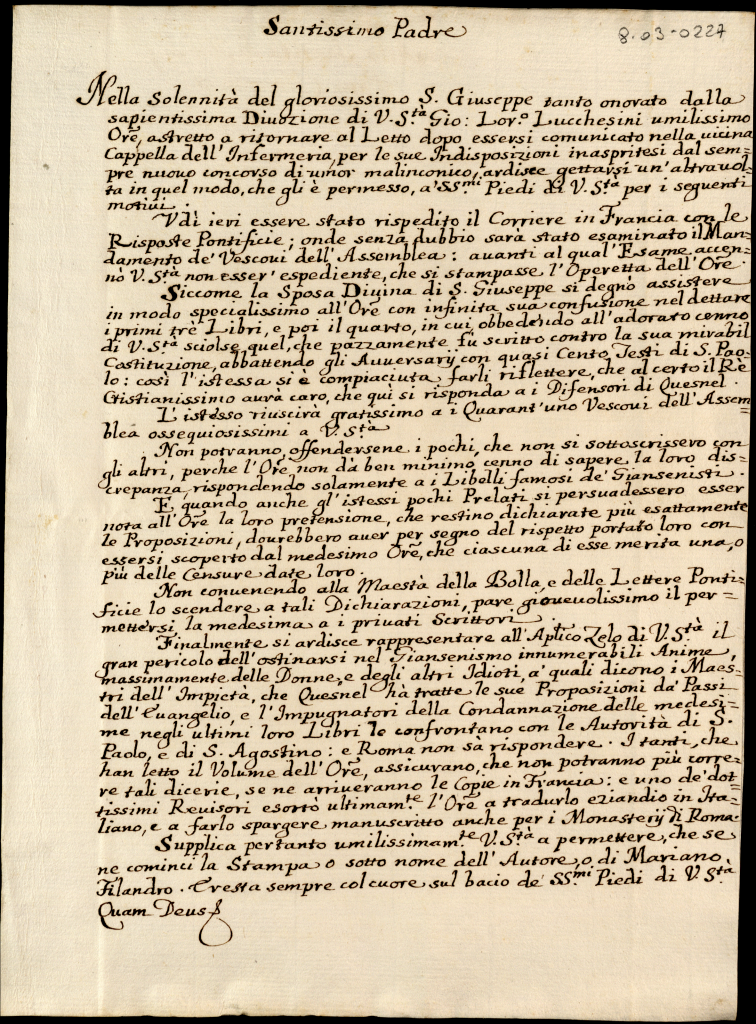 Santissimo Padre
8.03-0227
Nella Solennità del gloriosissimo S. Giuseppe tanto onorato dalla
sapientissima Divozione di V. S.tà Gio: Lor.o Lucchesini umilissimo
Ore, astretto a ritornare al Letto dopo essersi comunicato nella vicina
Cappella dell'Infermeria, per le sue Indisposizioni inaspritesi dal sem=
pre nuovo concorso di umor malinconico, ardisce gettarsi un'altra vol=
ta in quel modo, che gli è permesso, a' SS.mi Piedi di V. S.ta per i seguenti
motivi.
Vdì ieri essere stato rispedito il Corriere in Francia con le
Risposte Pontificie; onde senza dubbio sarà stato esaminato il Man=
damento de' Vescovi dell'Assemblea: avanti al qual' Esame accen=
nò V. S.tà non esser' espediente, che si stampasse l'Operetta dell'Ore.
Siccome la Sposa Divina di S. Giuseppe si degno assistere
in modo specialissimo all'Ore con infinita sua confusione nel dettare
i primi trè Libri, e poi il quarto, in cui, obbedendo all'adorato cenno
di V. S.ta sciolse quel, che pazzamente fu scritto contro la sua mirabil
Costituzione, abbattendo gli Avversarij con quasi Cento Testi di S. Pao=
lo: così l'istessa si è compiaciuta farli riflettere, che al certo il Rè
Cristianissimo avrà caro, che qui si risponda a i Difensori di Quesnel.
L'istesso riuscirà gratissimo a i Quarant'uno Vescovi dell'Assem
blea ossequiosissimi a V. S.ta
Non potranno offendersene i pochi, che non si sottoscrissero con
gli altri, perche l'Ore non dà ben minimo cenno di sapere la loro dis=
crepanza, rispondendo solamente a i Libelli famosi de' Giansenisti.
E quando anche gl'istessi pochi Prelati si persuadessero esser
nota all'Ore la loro pretensione, che restino dichiarate più esattamente
le Proposizioni, dovrebbero aver per segno del rispetto portato loro con
essersi scoperto dal medesimo Ore, che ciascuna di esse merita una, o
più delle Censure date loro.
Non convenendo alla Maestà della Bolla, e delle Lettere Ponti=
ficie lo scendere a tali Dichiarazioni, pare giovevolissimo il per=
mettersi la medesima a i privati Scrittori.
Finalmente si ardisce rappresentare all'Aplico Zelo di V. S.tà il
gran pericolo dell'ostinarsi nel Giansenismo innumerabili Anime,
massimamente delle Donne, e degli altri Idioti, a' quali dicono i Maes=
tri dell'Impietà, che Quesnel ha tratte le sue Proposizioni da' Passi
dell'Evangelio, e l'Impugnatori della Condannazione delle medesi=
me negli ultimi loro Libri le confrontano con le Autorità di S.
Paolo, e di S. Agostino: e Roma non sà rispondere. I tanti, che
han letto il Volume dell'Ore, assicurano, che non potranno più corre=
re tali dicerie, se ne arriveranno le Copie in Francia: e uno de' dot=
tissimi Revisori esortò ultimam.te l'Ore a tradurlo eziandio in Ita=
liano, e a farlo spargere manuscritto anche per i Monasterij di Roma.
Supplica pertanto umilissimam.te V. S.tà a permettere, che se
ne cominci la Stampa o sotto nome dell'Autore, o di Mariano
Filandro. E resta sempre col cuore sul bacio de' SS.mi Piedi di V. S.ta
Quam Deus